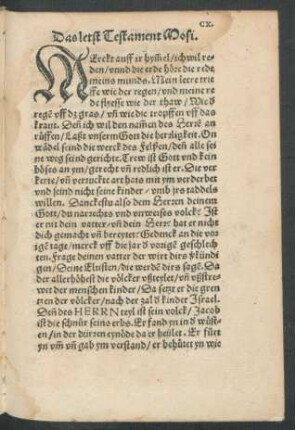 CX.
Das letst Testament Mosi.
MErckt auff ir hym̃el / ich wil re-
den / vnnd die erde hör die rede
meins munds. Mein leere trief-
fe wie der regen / vnd meine re
de fliesse wie der thaw / Wie d̕
regē vff dz gras / vn̄ wie die tropffen vff das
kraut. Deñ ich wil den nam̃en des Herrē an
rüffen / Laßt vnserm Gott die herligkeit. On
wādel seind die werck des Felsen / deñ alle sei
ne weg seind gericht. Trew ist Gott vnd kein
böses an ym / gerecht vn̄ redlich ist er. Die ver
kerte / vn̄ verruckte art hats mit ym verderbet
vnd seind nicht seine kinder / vmb jrs taddels
willen. Danckestu also dem Herzen deinem
Gott / du narrechts vnd vnweises volck? Ist
er nit dein vatter / vn̄ dein Herr? hat er nicht
dich gemacht vn̄ bereytet? Gedenck an die vo
rige tage / merck vff die jar d̕ vorigē geschlech
ten. Frage deinen vatter der wirt dirs v̓kündi
gen / Deine Eltisten / die werdē dirs sagē. Da
der allerhöhest die völcker vßteylet / vn̄ vßstre
wet der menschen kinder / Da setzt er die gren
tzen der völcker / nach der zal d̕ kinder Israel.
Deñ des HERRN teyl ist sein volck / Jacob
ist die schnůr seins erbs. Er fand yn in d̕ wüs-
ten / in der dürren eynöde da er heület. Er fürt
yn vm̄ vn̄ gab ym verstand / er behütet yn wie